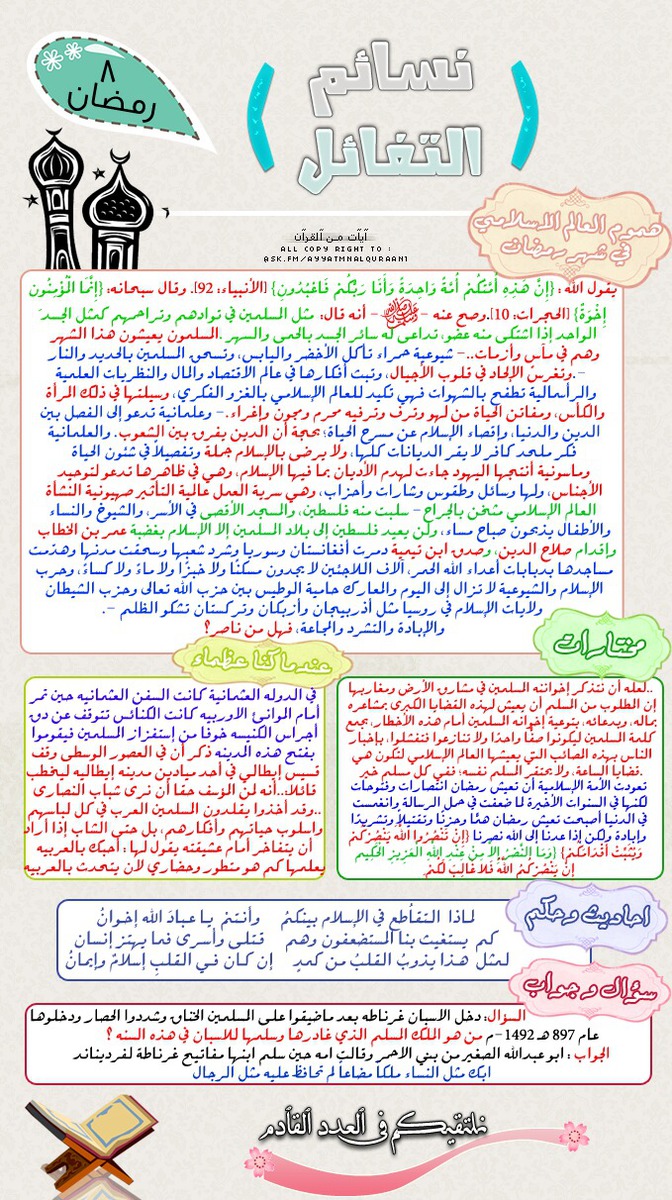 ٨
رمضان
نسائم
التفائل
هموم العالم الاسلامي
في شهر رمضان
آيات من القرآن
ALL COPY RIGHT TO :
ASK.FM/AYYATMNALQURAAN1
يقول الله : {إِنَّ هَذِهِ أُمَّتُكُمْ أُمَّةً وَاحِدَةً وَأَنَا رَبُّكُمْ فَاعْبُدُونِ} [الأنبياء: 92]. وقال سبحانه: {إِنَّمَا الْمُؤْمِنُونَ
إِخْوَةٌ} [الحجرات: 10].وصح عنه – ﷺ – أنه قال: مثل المسلمين في توادهم وتراحمهم كمثل الجسد
الواحد إذا اشتكى منه عضو، تداعى له سائر الجسد بالحمى والسهر .المسلمون يعيشون هذا الشهر
وهم في مآس وأزمات..- شيوعية حمراء تأكل الأخضر واليابس، وتسحق المسلمين بالحديد والنار
-.وتغرسُ الإلحاد في قلوب الأجيال، وتبث أفكارها في عالم الاقتصاد والمال والنظريات العلمية
والرأسمالية تطفح بالشهوات فهي تكيد للعالم الإسلامي بالغزو الفكري، وسيلتها في ذلك المرأة
والكأس، ومفاتن الحياة من لهو وترف وترفيه محرم ومجون وإغراء.- وعلمانية تدعو إلى الفصل بين
الدين والدنيا، وإقصاء الإسلام عن مسرح الحياة؛ بحجة أن الدين يفرق بين الشعوب. والعلمانية
فكر ملحد كافر لا يقر الديانات كلها، ولا يرضى بالإسلام جملة وتفصيلاً في شئون الحياة
وماسونية أنتجها اليهود جاءت لهدم الأديان بما فيها الإسلام، وهي في ظاهرها تدعو لتوحيد
الأجناس، ولها وسائل وطقوس وشارات وأحزاب، وهي سرية العمل عالية التأثير صهيونية النشأة
العالم الإسلامي مثخن بالجراح - سلبت منه فلسطين، والمسجد الأقصى في الأسر، والشيوخ والنساء
والأطفال يذبحون صباح مساء، ولن يعيد فلسطين إلى بلاد المسلمين إلا الإسلام بغضبة عمر بن الخطاب
وإقدام صلاح الدين، وصدق ابن تيمية دمرت أفغانستان وسوريا وشرد شعبها وسحقت مدنها وهدمت
مساجدها بدبابات أعداء الله الحمر، آلاف اللاجئين لا يجدون مسكنًا ولا خبزًا ولا ماءً ولا كساءً، وحرب
الإسلام والشيوعية لا تزال إلى اليوم والمعارك حامية الوطيس بين حزب الله تعالى وحزب الشيطان
ولايات الإسلام في روسيا مثل أذربيجان وأزبكان وتركستان تشكو الظلم -.
والإبادة والتشرد والمجاعة، فهل من ناصر؟
مختارات
..لعله أن نتذكر إخواننه المسلمين في مشارق الأرض ومغاربها
إن المطلوب من المسلم أن يعيش لهذه القضايا الكبرى بمشاعره
بماله، وبدعائه، بتوعية إخوانه المسلمين أمام هذه الأخطار، بجمع
كلمة المسلمين ليكونوا صفًا واحدًا ولا تنازعوا فتفشلوا، بإخبار
الناس بهذه المصائب التي يعيشها العالم الإسلامي لتكون هي
.قضايا الساعة، ولا يحتقر المسلم نفسه؛ ففي كل مسلم خير
تعودت الأمة الإسلامية أن تعيش رمضان انتصارات وفتوحات
لكنها في السنوات الأخيرة لما ضعفت في حمل الرسالة وانغمست
في الدنيا أصبحت تعيش رمضان همًّا وحزنًا وتقتيلاً وتشريدًا
وإبادة ولكن إذا عدنا إلى الله نصرنا {إِنْ تَنْصُرُوا اللَّهَ يَنْصُرْكُمْ
وَيُثَبِّتْ أَقْدَامَكُمْ} {وَمَا النَّصْرُ إِلاَّ مِنْ عِنْدِ اللَّهِ الْعَزِيزِ الْحَكِيمِ
إِنْ يَنْصُرْكُمُ اللَّهُ فَلاَ غَالِبَ لَكُمْ
عندما كنا عظماء
في الدوله العثمانية كانت السفن العثمانيه حين تمر
أمام الموانئ الاوربيه كانت الكنائس تتوقف عن دق
أجراس الكنيسه خوفا من إستفزاز المسلمين فيقوموا
بفتح هذه المدينه ذكر أن في العصور الوسطى وقف
قسيس إيطالي في أحد ميادين مدينه إيطاليه ليخطب
قائلا...أنه لمن المؤسف حقا أن نرى شباب النصارى
..وقد أخذوا يقلدون المسلمين العرب في كل لباسهم
واسلوب حياتهم وأفكارهم، بل حتى الشاب إذا أراد
أن يتفاخر أمام عشيقته يقول لها : أحبك بالعربيه
يعلمها كم هو متطور وحضاري لأن يتحدث بالعربيه
احاديث وحكم
لماذا التقاطع في الإسلام بينكمُ وأنتمْ يا عبادَ الله إخوانُ
كم يستغيث بنا المستضعفون وهم قتلى وأسرى فما يهتز إنسان
لمثل هذا يذوبُ القلبُ من كمدٍ إن كان في القلبِ إسلامٌ وإيمانُ
سؤال و جواب
السؤال: دخل الاسبان غرناطه بعد ماضيقوا على المسلمين الخناق وشددوا الحصار ودخلوها
عام 897 هـ 1492-م من هو الملك المسلم الذي غادرها وسلمها للاسبان في هذه السنه ؟
الجواب : ابو عبدالله الصغير من بني الاحمر وقالت امه حين سلم ابنها مفاتيح غرناطة لفرديناند
ابك مثل النساء ملكا مضاعا لم تحافظ عليه مثل الرجال
نلتقيكم في العدد القادم